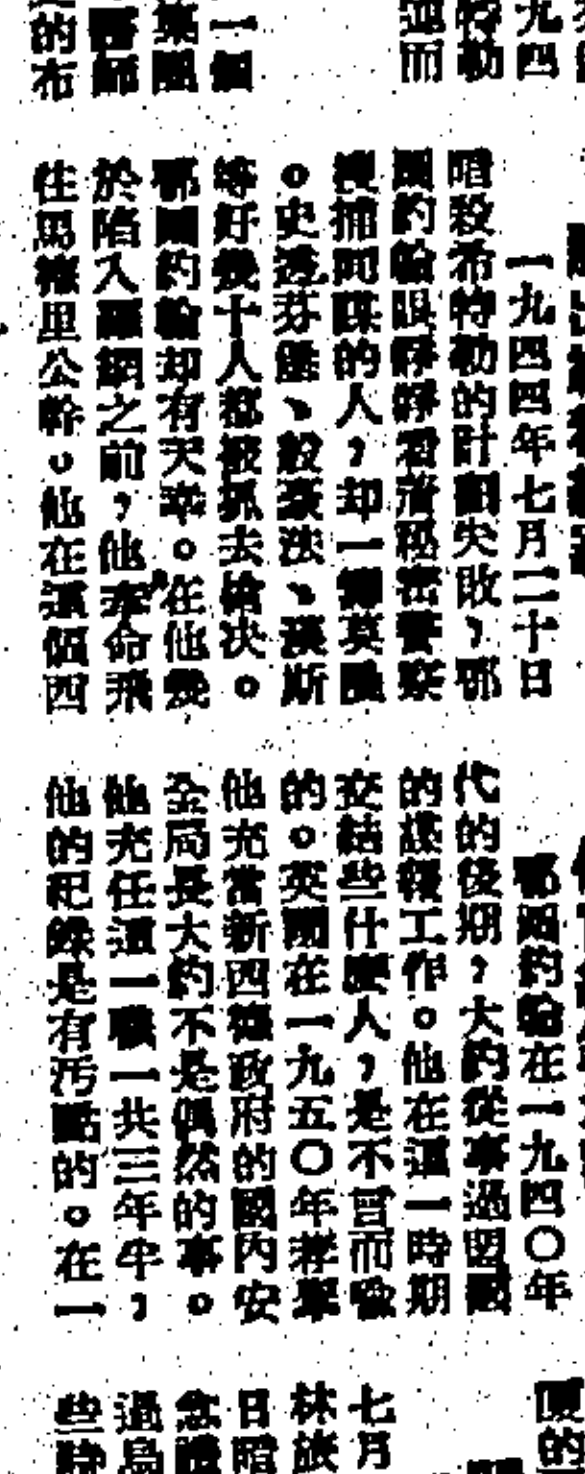 九四
特勒
而
一個
集團
醫師
的布
一九四四年七月二十日
暗殺希特勒的計劃失敗，鄂
圖約翰眼睜睜看着秘密警察
搜捕同謀的人，却一籌莫展
。史透芬堡、般豪法、漢斯
等好幾十人都被抓去槍决。
鄂圖約翰却有天幸。在他幾
於陷入羅網之前，他奉命飛
往馬德里公幹。他在這個四
鄂圖約翰在一九四〇年
代的後期，大約從事過盟國
的諜報工作。他在這一時期
交結些什麼人，是不言而喻
的。英國在一九五〇年推舉
他充當新西德政府的國內安
全局長大約不是偶然的事。
他充任這一職一共三年半，
他的紀錄是有污點的。在一
的
七月
林旅
日暗
念
過島
些時